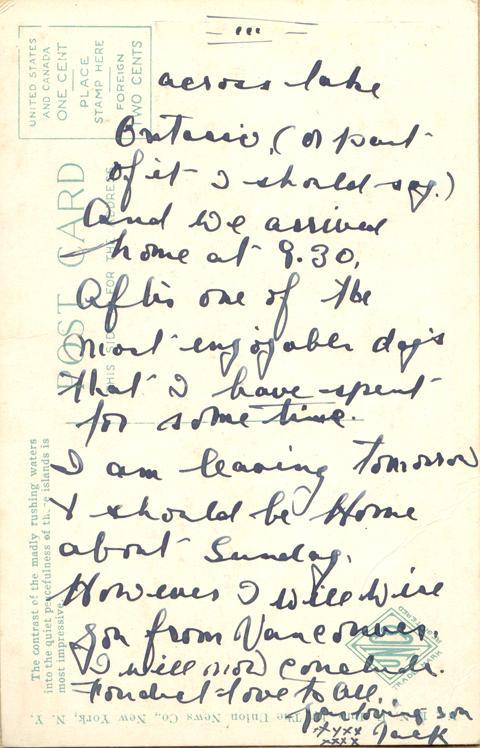 "'"
across lake
Ontario, (or part
of it I should say.)
And we arrived
home at 9.30,
After one of the
most enjoyable days
that I have spent
for some time.
I am leaving tomorrow
& should be Home
about Sunday.
However I will wire
you from Vancouver.
I will now conclude.
Fondest love to all,
Your loving son
Jack
xxxx
xxxx
POST CARD
THIS SIDE FOR THE ADDRESS
UNITED STATES
AND CANADA
ONE CENT
PLACE
STAMP HERE
FOREIGN
TWO CENTS
The contrast of the madly rushing waters
into the quiet peacefulness of these islands is
most impressive.
The Union News Co., New York, N. Y.
UNCO
REGISTERED
TRADE MARK